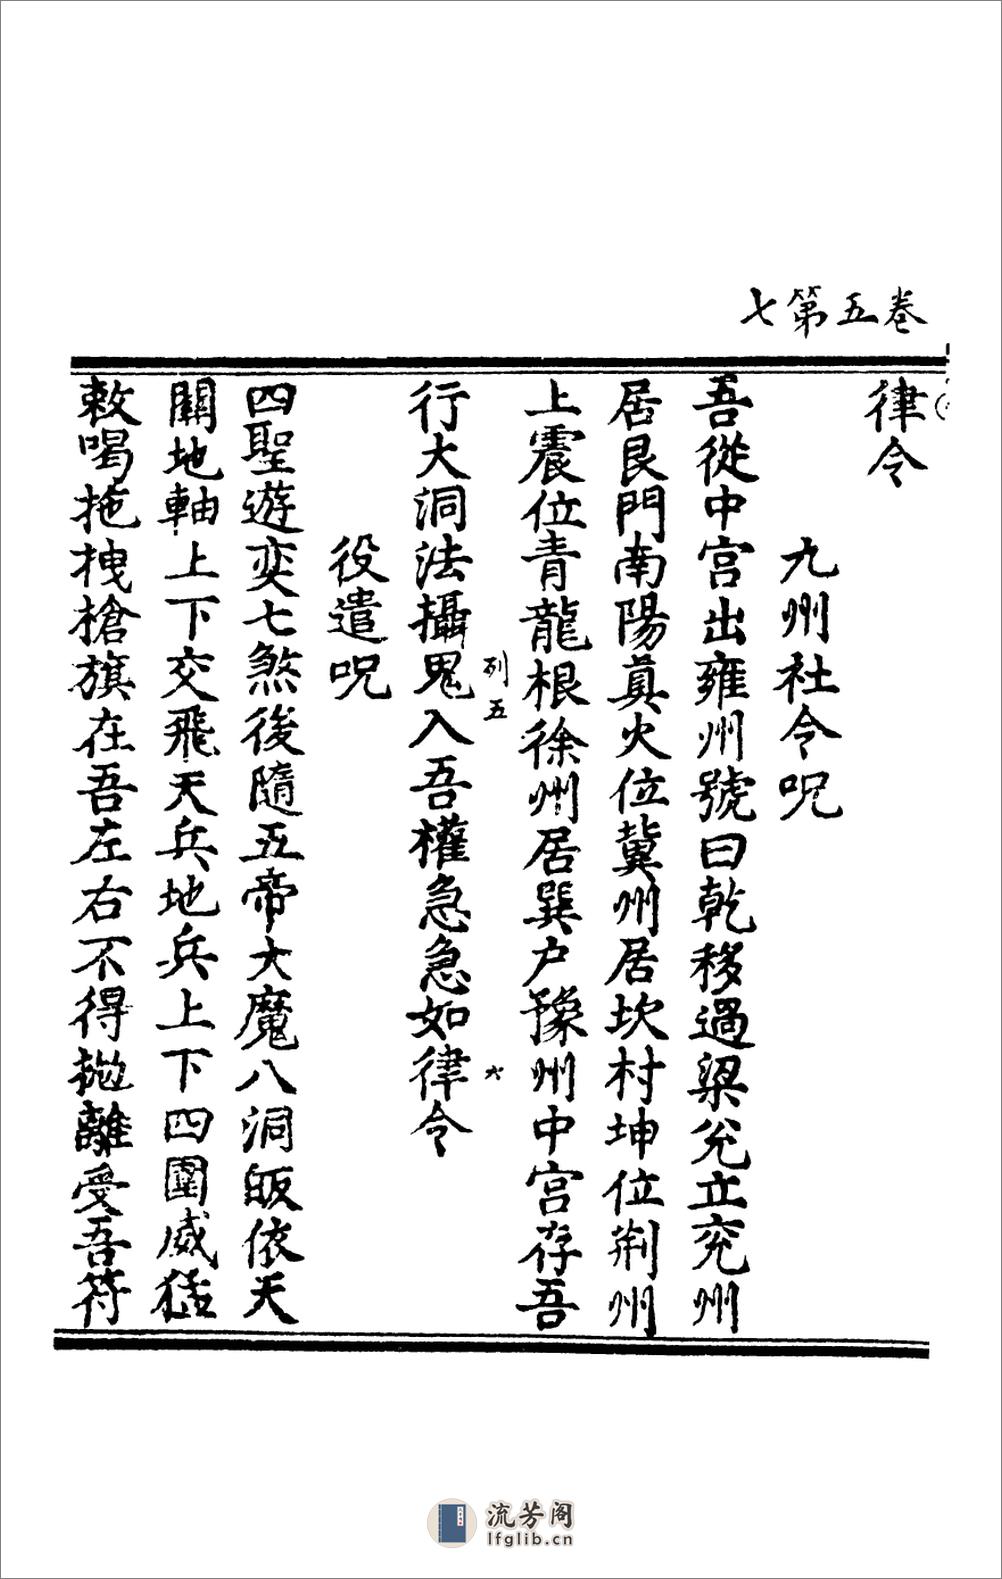 卷五第七
律令
九州社令呪
吾從中宮出雍州號曰乾移過梁兊立兖州
居艮門南陽真火位冀州居坎村坤位荆州
上震位青龍根徐州居巽户豫州中宮存吾
列五
六
行大洞法攝鬼入吾權急急如律令
役遣呪
四聖遊奕七煞後隨五帝大魔八洞皈依天
關地軸上下交飛天兵地兵上下四圍威猛
敕喝拖拽槍旗在吾左右不得抛離受吾符
流芳阁
lfglib.cn